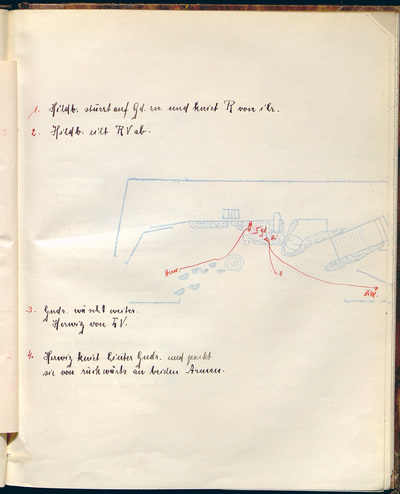 1. Hildb. stürzt auf Gd. zu und kniet R von ihr.
2. Hildb. eilt R V ab.
Herw.
H
Gd
H
Hild.
3. Gudr. wankt weiter.
Herwig von L V.
4. Herwig kniet hinter Gudr. und packt
sie von rückwärts an beiden Armen.